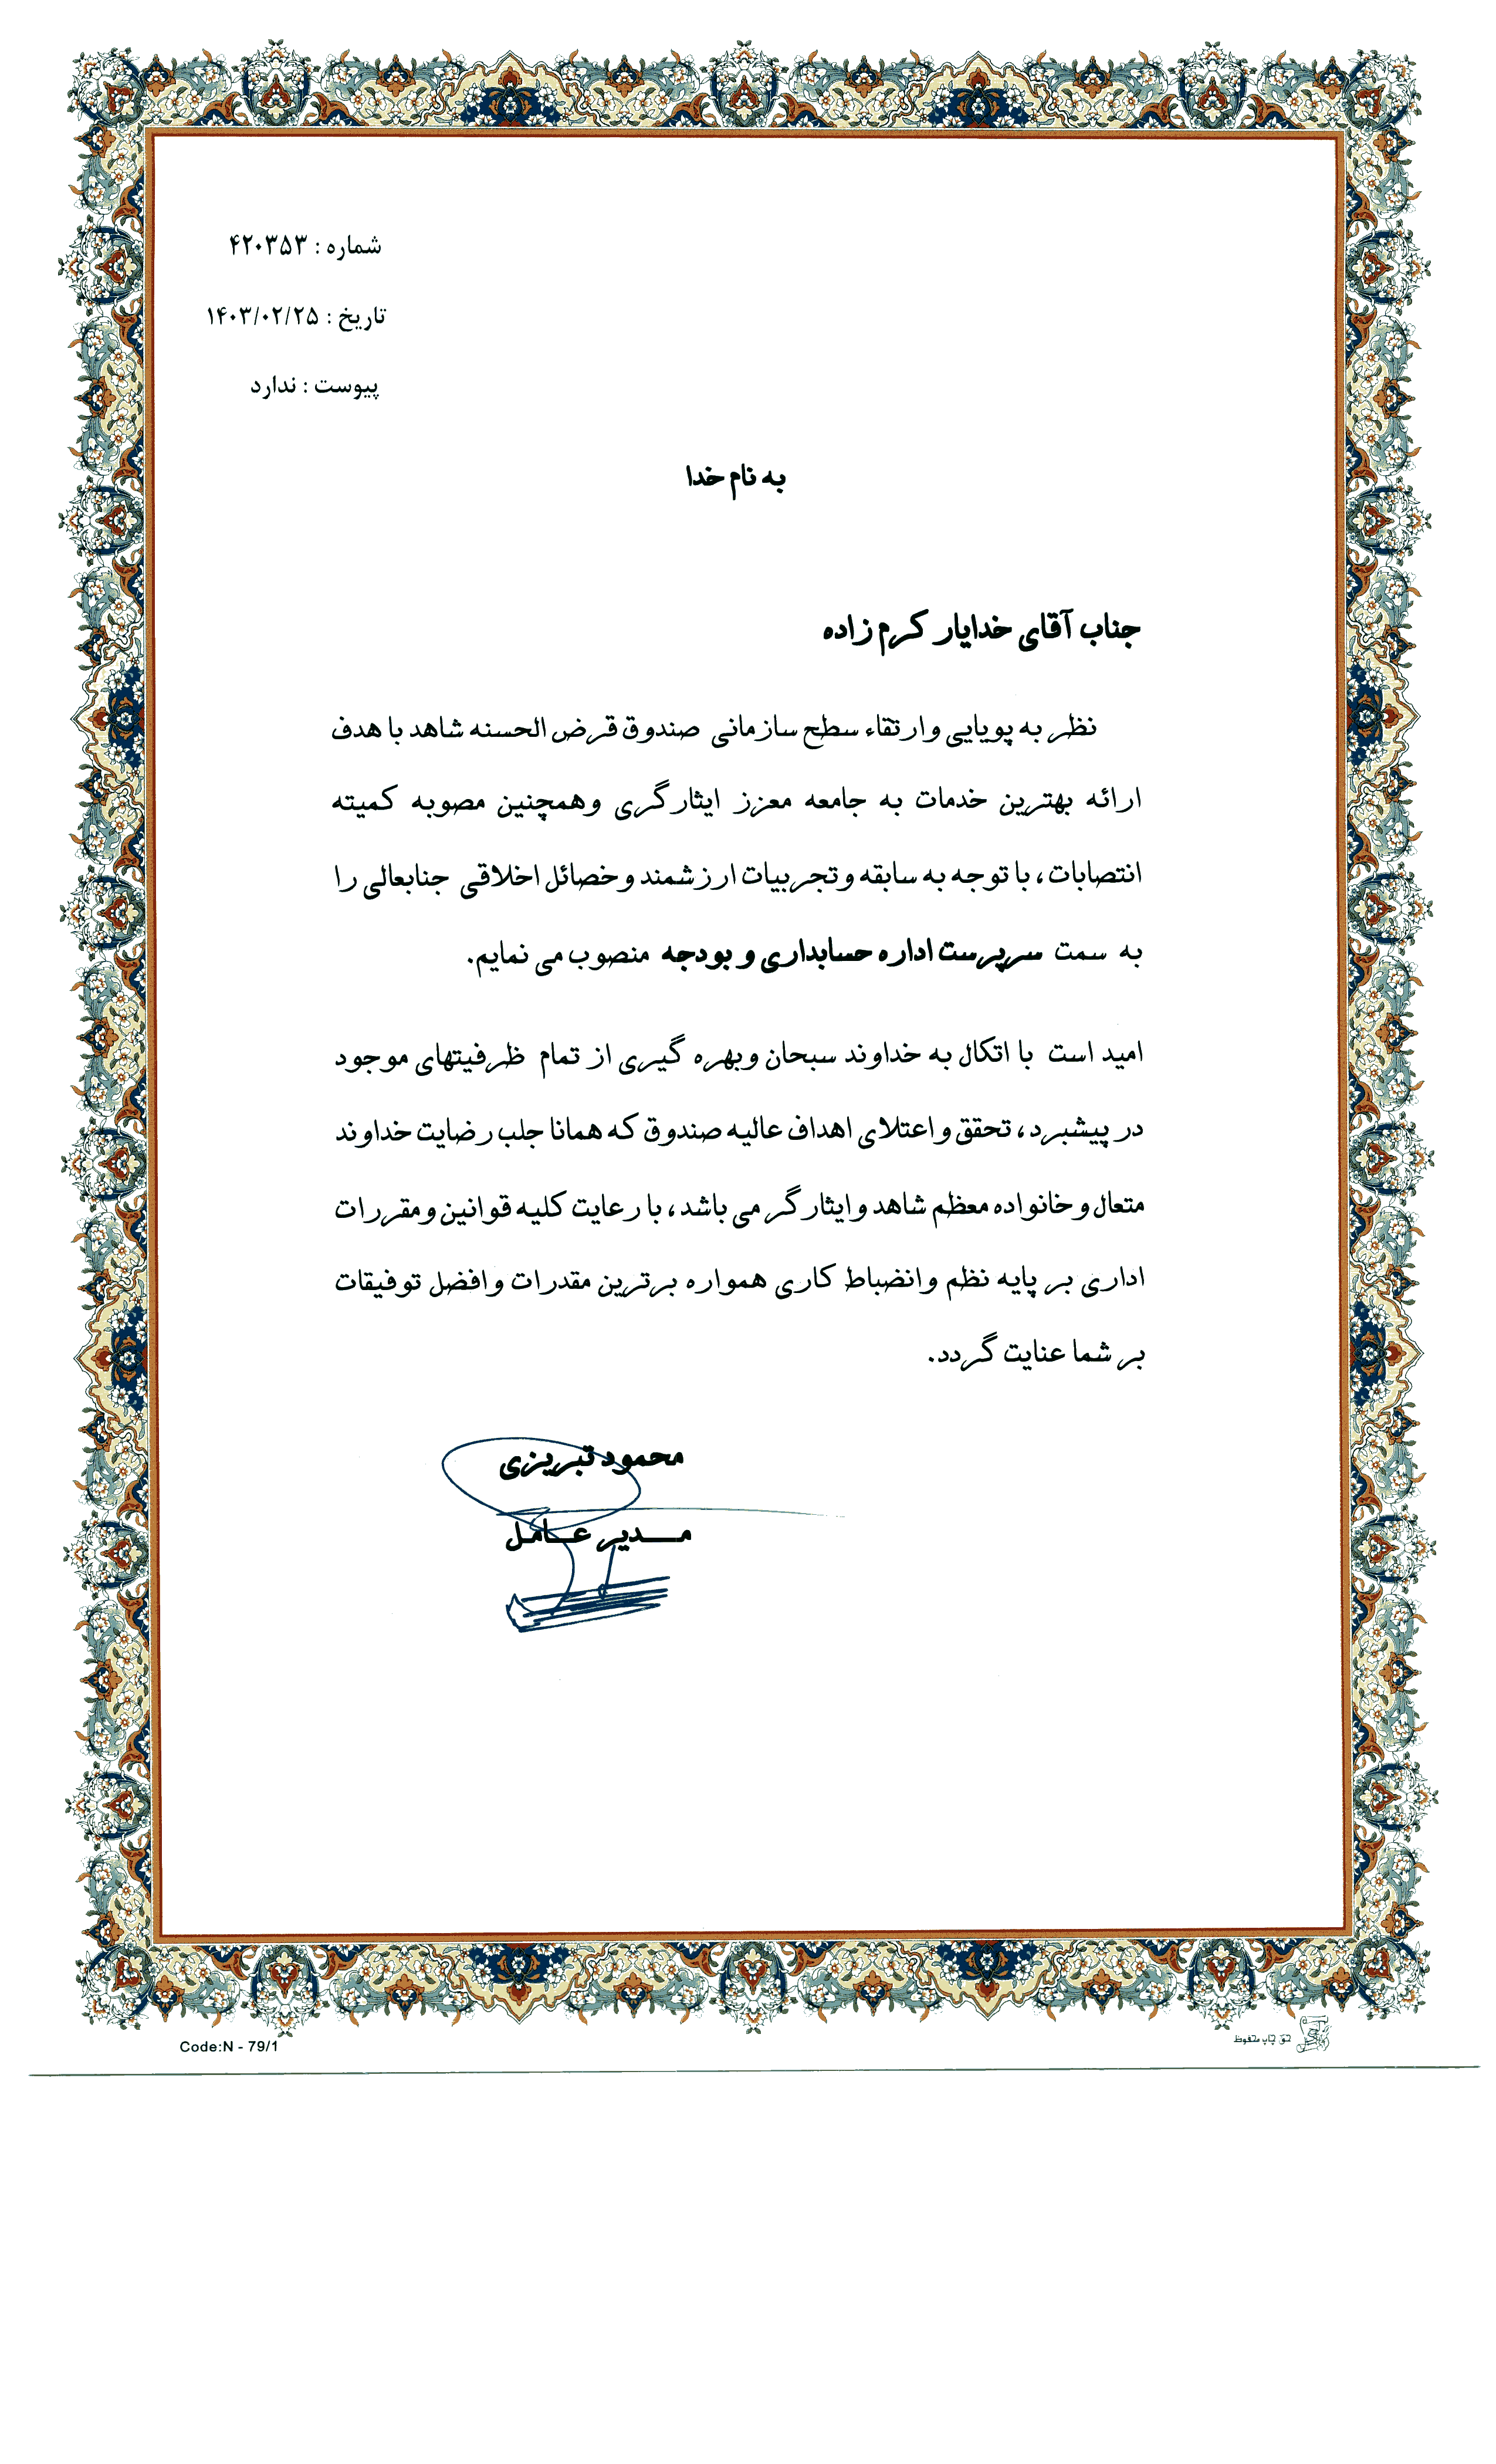 شماره : ۴۲۰۳۵۳
تاریخ : ۱۴۰۳/۰۲/۲۵
پیوست : ندارد
به نام خدا
جناب آقای خدایار کرم زاده
نظر به پویایی و ارتقاء سطح سازمانی صندوق قرض الحسنه شاهد با هدف
ارائه بهترین خدمات به جامعه معزز ایثارگری وهمچنین مصوبه کمیته
انتصابات، با توجه به سابقه و تجربیات ارزشمند و خصائل اخلاقی جنابعالی را
به سمت سرپرست اداره حسابداری و بودجه منصوب می نمایم.
امید است با اتکال به خداوند سبحان وبهره گیری از تمام ظرفیتهای موجود
در پیشبرد، تحقق و اعتلای اهداف عالیه صندوق که همانا جلب رضایت خداوند
متعال و خانواده معظم شاهد و ایثارگر می باشد، با رعایت کلیه قوانین و مقررات
اداری بر پایه نظم وانضباط کاری همواره برترین مقدرات و افضل توفیقات
بر شما عنایت گردد.
محمود تبریزی
مـــدیر عـــامـل
Code:N - 79/1
حق چاپ محفوظ